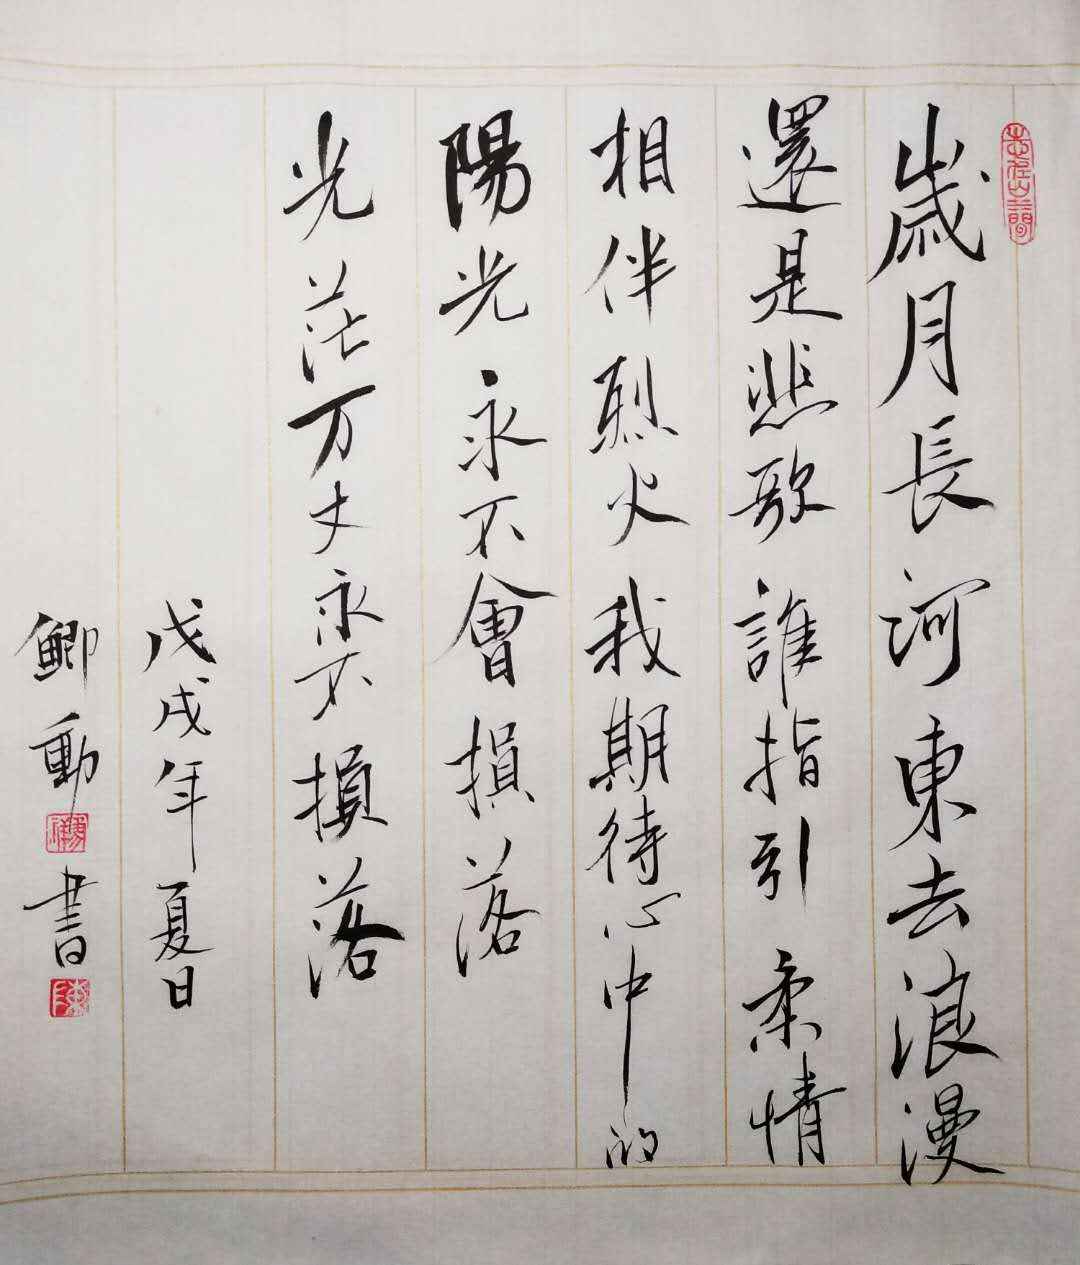 歲月長河東去浪漫
還是悲歌誰指引柔情
相伴烈火我期待心中的
陽光永不會損落
光茫万丈永不損落
戊戌年夏日
鯽動書